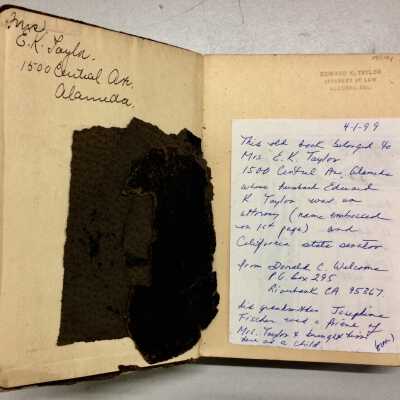 Mrs
E.K. Taylor.
1500 Central Ave.
Alameda.
EDWARD K. TAYLOR
ATTORNEY AT LAW
ALAMEDA, CAL.
4-1-99
This old book belonged to
Mrs. E. K. Taylor
1500 Central Ave, Alameda
whose husband Edward
K Taylor was an
attorney (name embossed
on 1st page) and
California state senator.
from Donald C. Welcome
P.O Box 295
Riverbank CA 95367.
his grandmother Josephine
Fischer was a friend of
Mrs. Taylor &
here as a child
(over)